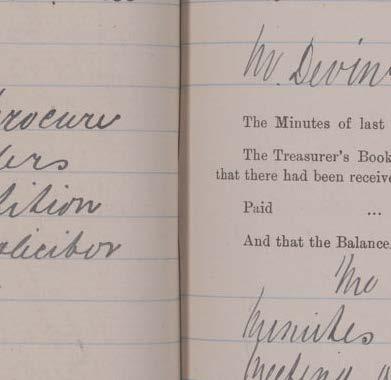 procure
ition
olicitor
Mr. Devin
The Minutes of last
The Treasurer's Book
that there had been receive
Paid ...
And that the Balance
The
Minutes
Meeting